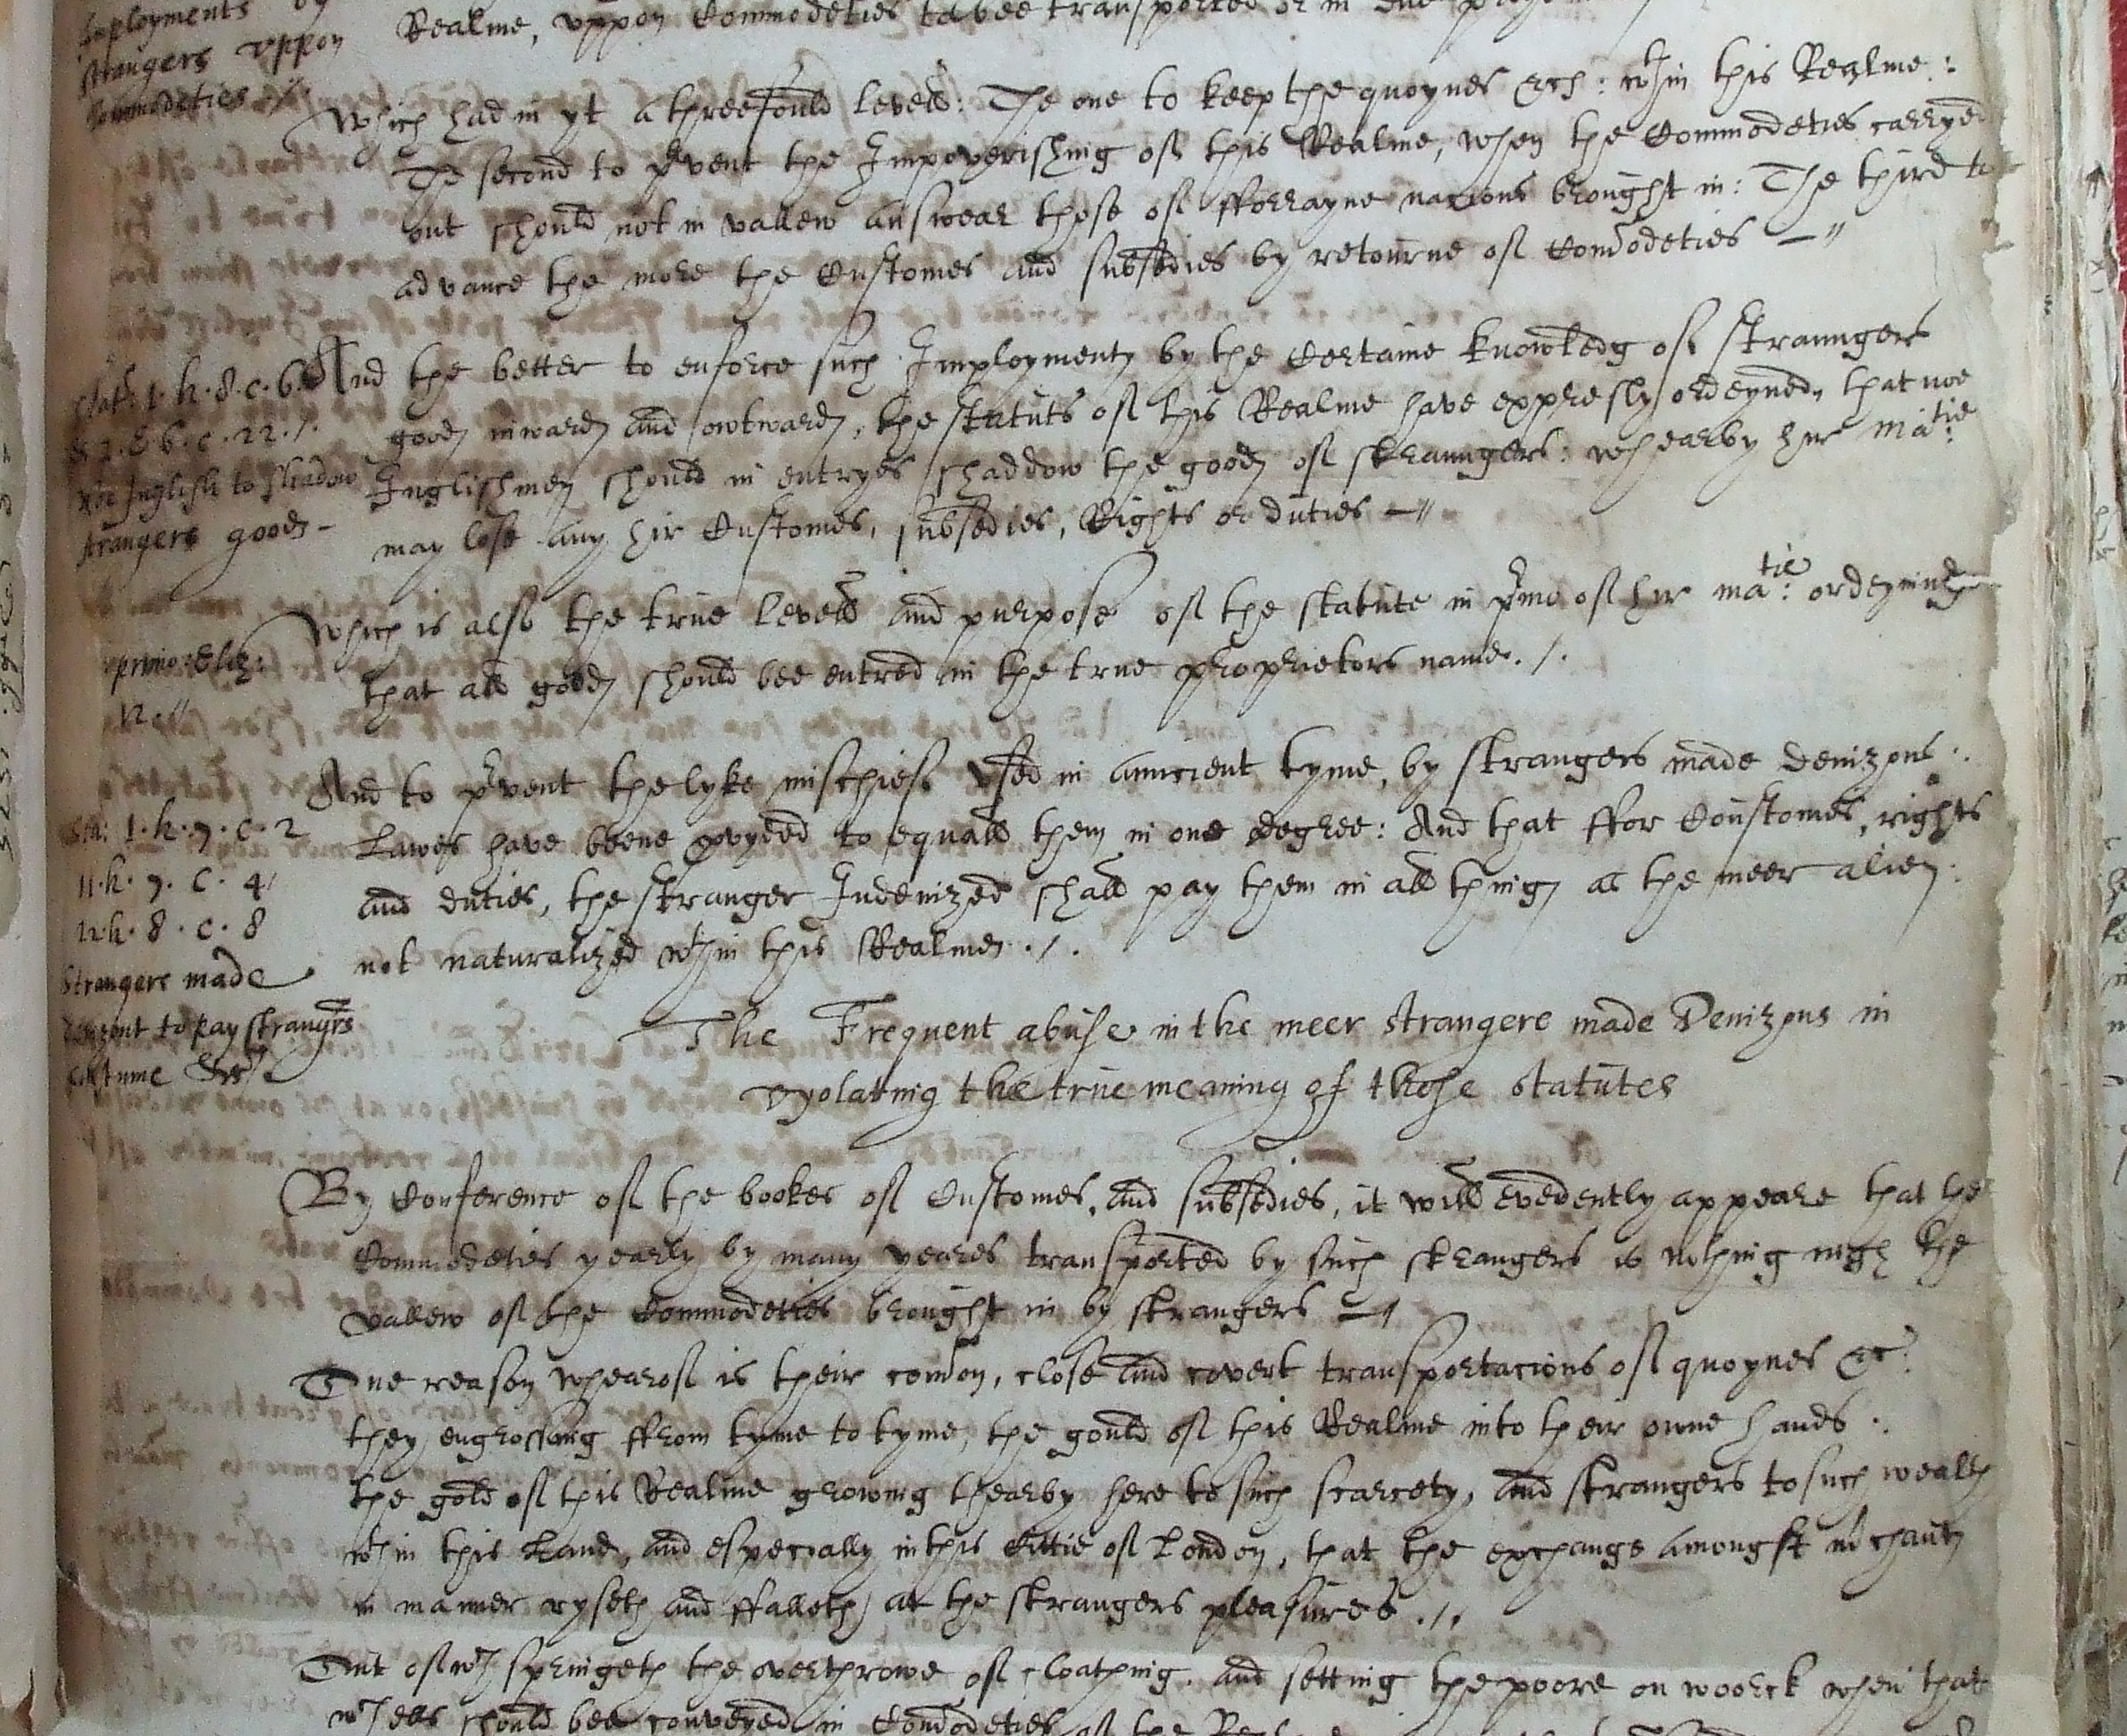 Imployments by
strangers vppon
Commodeties ./.
Realme, vppon Commodeties to bee transported or in due
Which had in yt a threefould levell: The one to keep the quoynes &c: wthin this Realme:
The second to pvent the Impoverishing of this Realme, when the Commodeties carryed
out should not in vallew answear those of fforrayne nacions brought in: The third to
advance the more the Customes and subsedies by retourne of Comodeties —//
Stat: 1. h. 8. c.
& 2. E 6. c. 22 ./.
Noe Inglish to shadow
strangers goodes –
And the better to enforce such Imploymentes by the Certaine knowledg of straungers
goodes inwardes and owtwardes, the statuts of this Realme have expresly ordeyned, that noe
Inglishmen should in entryes shaddow the goodes of straungers: whearby hir Matie:
may lose any hir Customes, subsedies, Rights or duties —//
primo: Eliz:
Which is also the true levell and purpose of the statute in pmo of hir matie: ordeyninge
that all goodes should bee entred in the true proprietors name ./.
Sta: 1. h. 7. c. 2
11. h. 7. c. 4/
22 h. 8. c. 8
Strangers made
denizens to pay strangrs
custume &c
And to pvent the lyke mischief vsed in auncient tyme, by strangers made denizons:
Lawes have beene pvyded to equall them in one degree: And that ffor Coustomes, rights
and duties, the stranger Indenized shall pay them in all thinges as the meer alien:
not naturalized wthin this Realme ./.
The Frequent abuse in the meer strangers made Denizons in
vyolating the true meaning of those statutes
By Conference of the bookes of Customes, and subsedies, it will evedently appeare that the
Commodeties yearly by many yeares transported by such strangers is nothing nigh the
vallew of the Commodeties brought in by strangers —//
One reason whearof is their comon, close and covert transportacions of quoynes &c:
they engrossing ffrom tyme to tyme, the gould of this Realme into their owne hands:
the gold of this Realme growing thearby here to such scarcety, and strangers to such wealth
wthin this Land, and especially in this Cittie of London, that the exchange amongst mchantes
in manner ryseth and ffalleth at the strangers pleasures ./.
Out of wch springeth the overthrowe of cloathing, and setting the poore on woorck when that
wch ells should bee conveyed in Comodeties of the